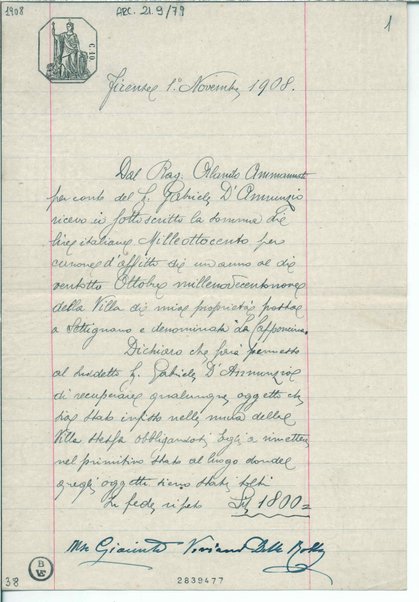 1908
ARC. 21.9/79
1
C. 10
Firenze 1º Novembre 1908.
Dal Rag. Orlando Ammannati
per conto del S. Gabriele D'Annunzio
ricevo io sottoscritto la somma di
lire italiane Milleottocento per
canone d'affitto di un anno al dì
ventotto Ottobre millenovecentonove
della Villa di mia proprietà posta
a Settignano e denominata la Capponcina.
Dichiaro che sarà permesso
al suddetto S. Gabriele D'Annunzio
di recuperare qualunque oggetto che
sia stato infisso nelle mura della
Villa stessa obbligandosi Egli a rimettere
nel primitivo stato al luogo donde
quegli oggetti sieno stati tolti
In fede, ripeto £ 1800=
Mse Giacinto Viviani Della Robbia
B
38
2839477